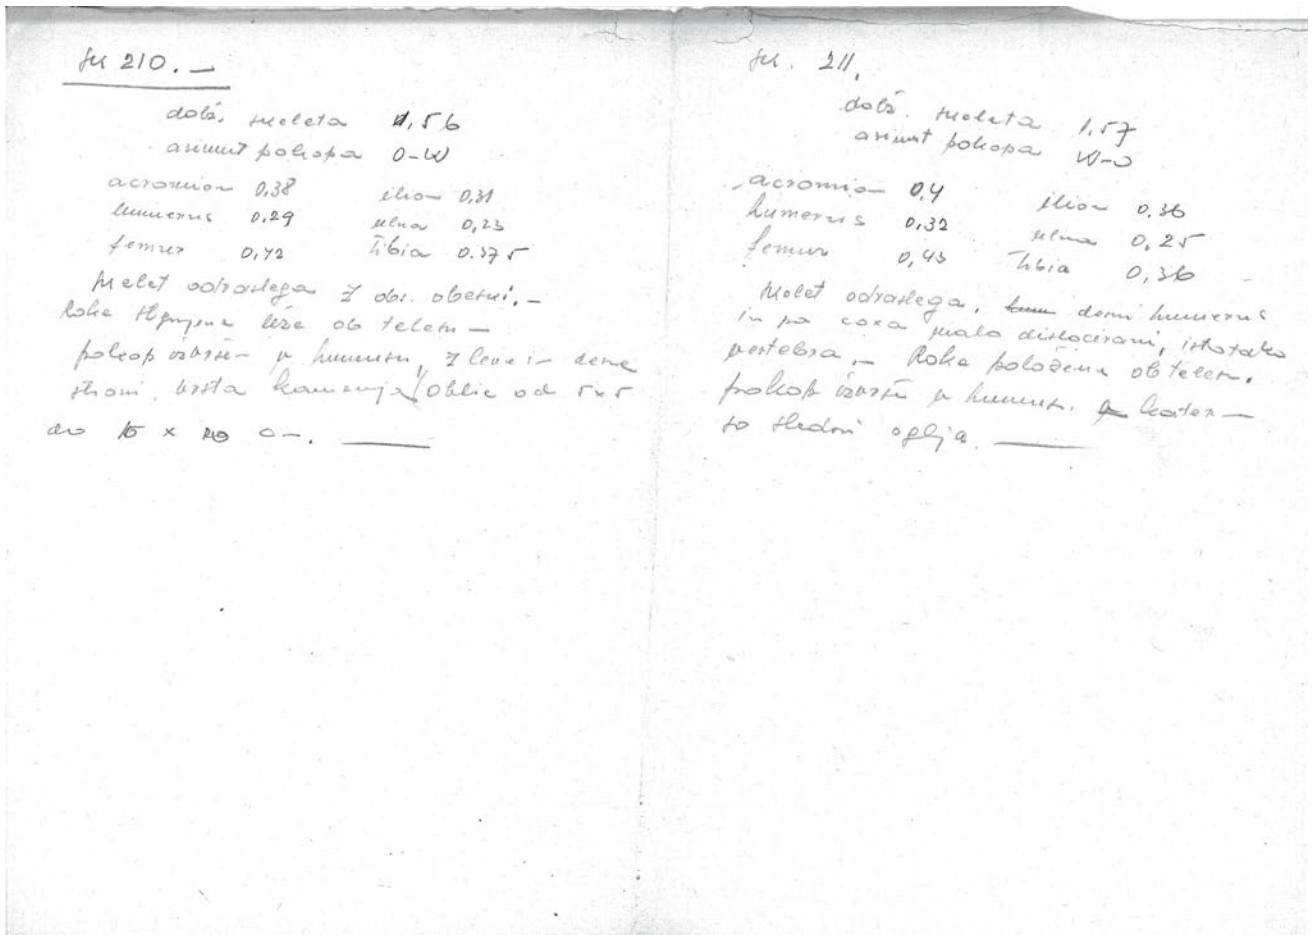 sk 210. —
dolž. skeleta 1,56
asimut pokopa O-W
acromion 0,38 ilion 0,31
humerus 0,29 ulna 0,23
femur 0,42 tibia 0.375
skelet odraslega z obr. obočnì. –
Roke leže ob telesu –
pokop izvršen v humusu, z leve in desne
strani vrsta kamenja oblic od 5x5
do 15 x 20 cm.
sk. 211.
dolž. skeleta 1,57
asimut pokopa W-O
acromion 0,4 ilion 0,36
humerus 0,32 ulna 0,25
femur 0,43 tibia 0,36
skelet odraslega, desni humerus
in pa coxa malo dislocirani, istotako
vertebra. – Roke položene ob telesu.
pokop izvršen v humus. v katerem
so sledovi oglja.